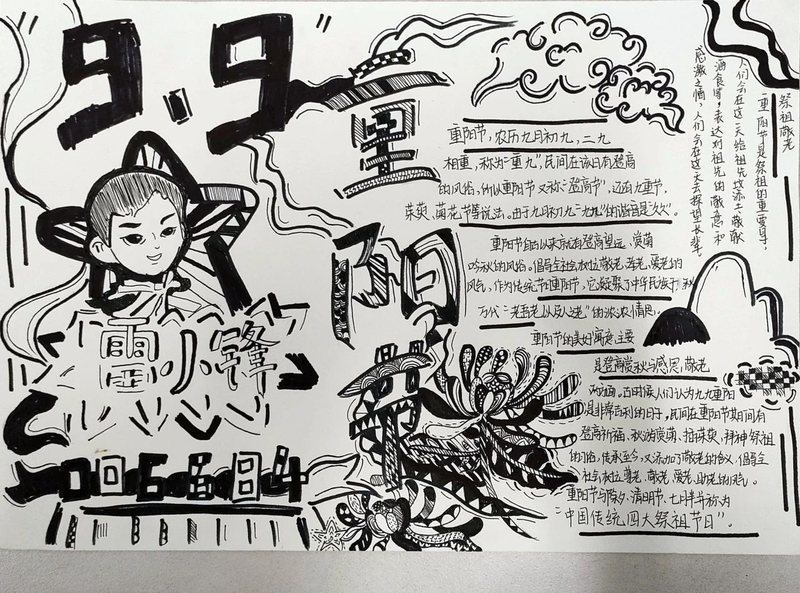 9.9
重
阳
節
雷小锋
重阳节，农历九月初九，二九
相重，称为"重九"，民间在该日有登高
的风俗，所以重阳节又称"登高节"，还有重九节、
茱萸、菊花节等说法。由于九月初九"九九"的谐音是"久久"。
重阳节自古以来就有登高望远、赏菊
吟秋的风俗。倡导全社会树立敬老、爱老的
风气，作为传统节重阳节，它凝聚了中华民族
万代"老吾老以及人老"的浓浓情思。
重阳节的美好寓意主要
是登高赏秋与感恩敬老
古时候人们认为九九重阳
是非常吉利的日子，民间在重阳节其日间有
登高祈福、秋游赏菊、拜神祭祖
的习俗，传承至今，又添加了敬老的含义，倡导全
社会树立尊老、敬老、爱老、助老的风气。
重阳节与除夕、清明节、七月半并称为
"中国传统四大祭祖节日"。
祭祖敬老
重阳节是祭祖的重要日子，
人们会在这一天给祖先坟添土、敬献
酒食等，表达对祖先的敬意和
感激之情，人们会在这一天去探望长辈